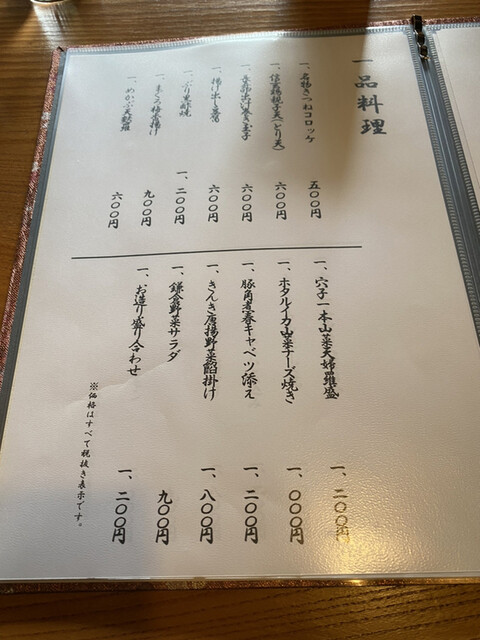 一品料理
一、名物きつねコロッケ 五〇〇円
一、親子天(とり天) 六〇〇円
一、出汁巻き玉子 六〇〇円
一、揚げ出し豆腐 六〇〇円
一、ぶり照焼 一、二〇〇円
一、まぐろ 揚げ 九〇〇円
一、めかぶ天麩羅 六〇〇円
一、穴子一本山菜天婦羅盛 一、二〇〇円
一、ホタルイカ山菜チーズ焼き 一、〇〇〇円
一、豚角煮春キャベツ添え 一、二〇〇円
一、きんき唐揚野菜餡掛け 一、八〇〇円
一、鎌倉野菜サラダ 九〇〇円
一、お造り盛り合わせ 一、二〇〇円
※価格はすべて税抜き表示です。